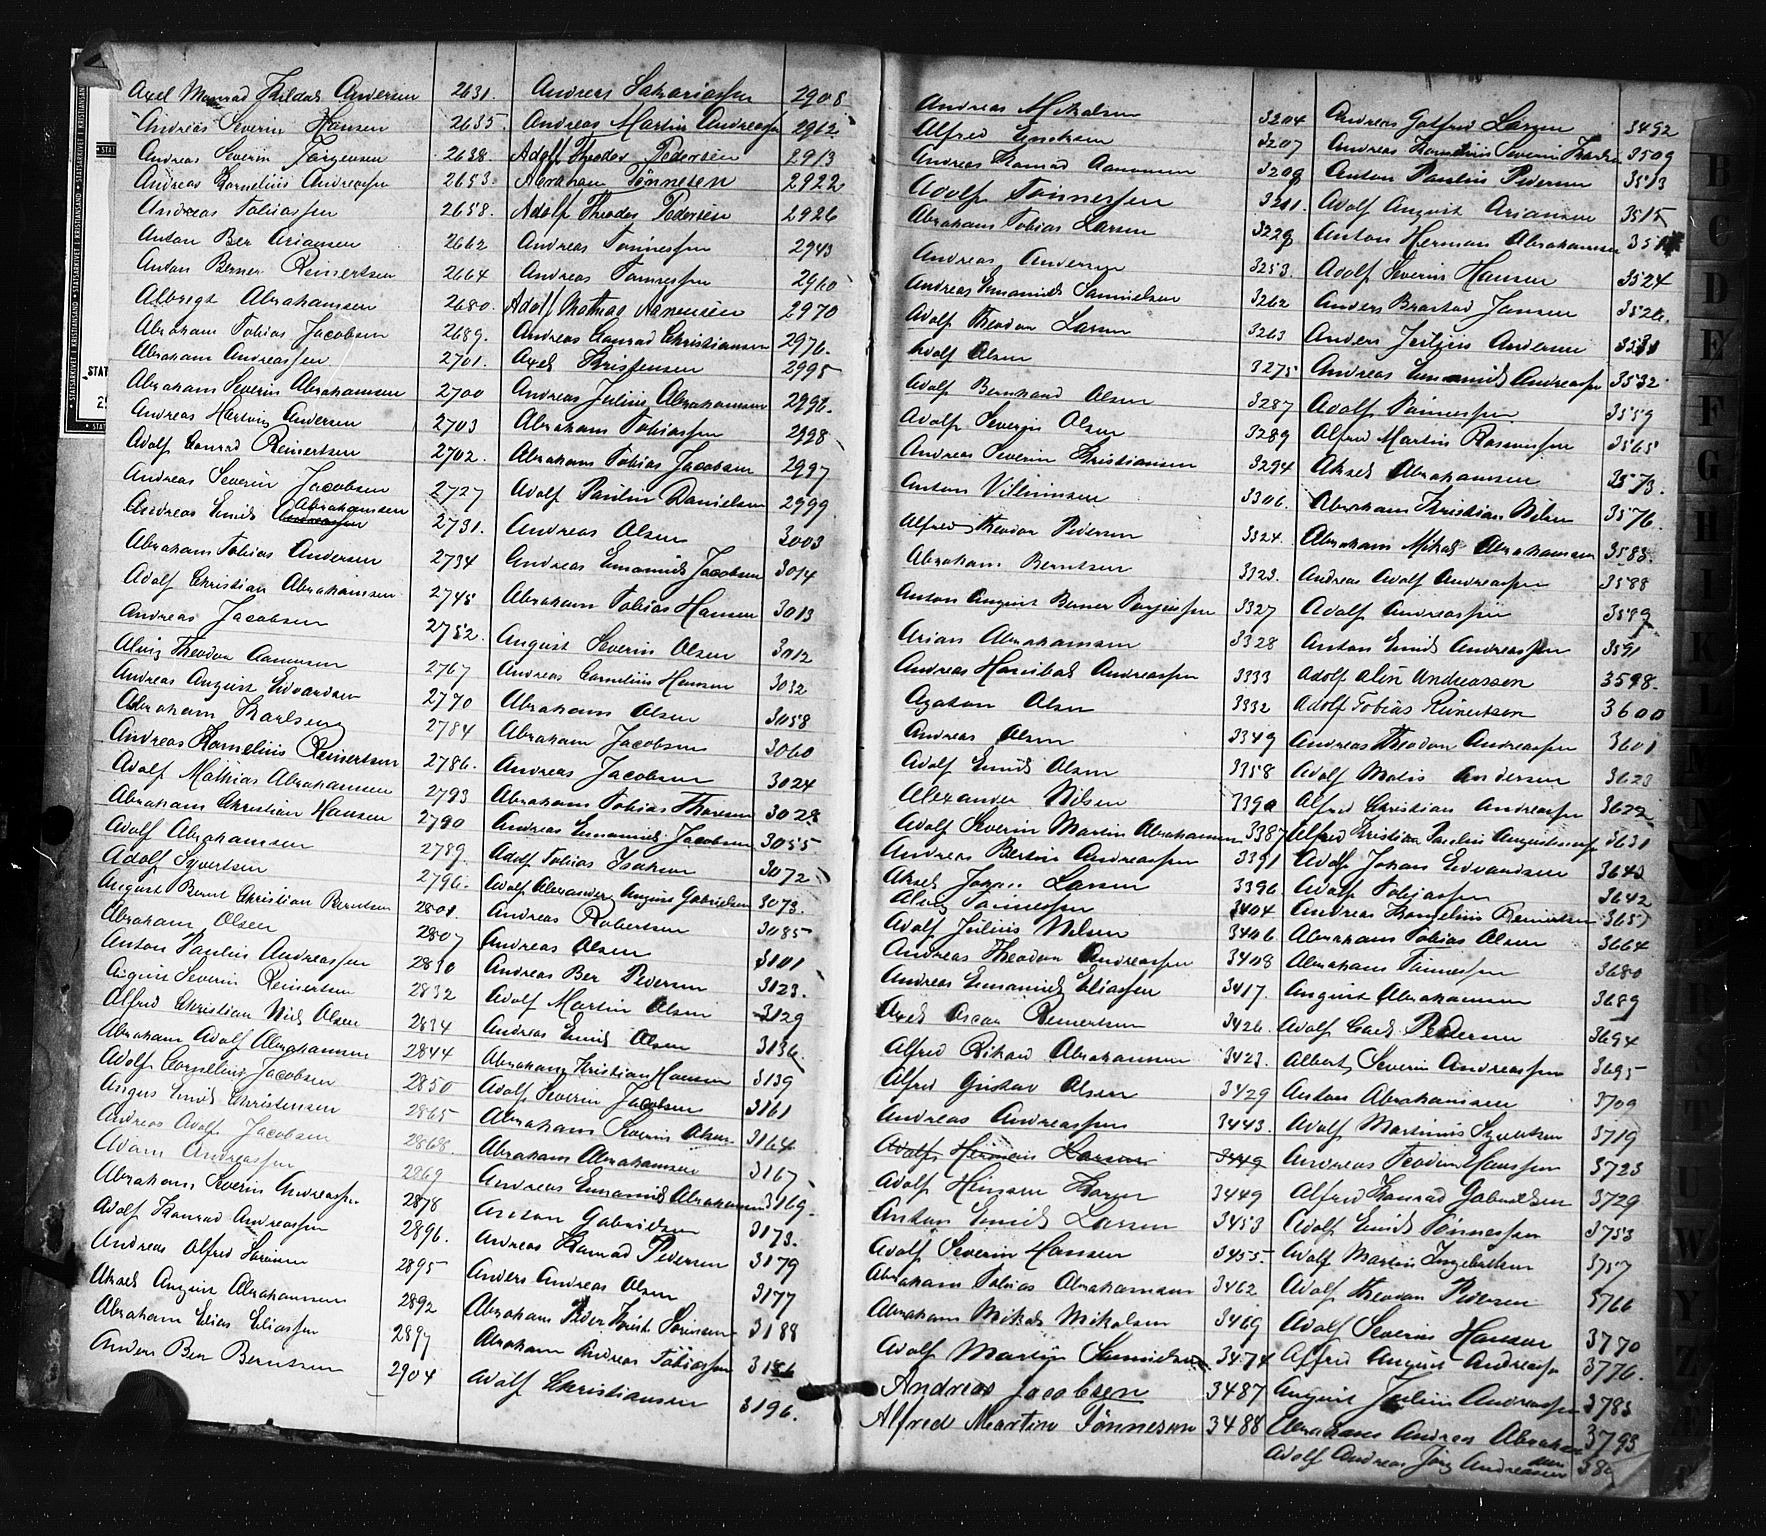 Axel Monrad Thildas Andersen 2631.
Andreas Severin Hansen 2635.
Andreas Severin Jørgensen 2638.
Andreas Kornelius Andreassen 2653.
Andreas Tobiassen 2658.
Anton Ber Ariansen 2662
Anton Berner Reinertsen 2664
Albregt Abrahamsen 2680.
Abraham Tobias Jacobsen 2689.
Abraham Andreassen 2701.
Abraham Severin Abrahamsen 2700
Andreas Hertvig Andersen 2703
Adolf Conrad Reinertsen 2702.
Andreas Severin Jacobsen 2727
Andreas Emil Abrahamsen 2731.
Abraham Tobias Andersen 2734
Adolf Christian Abrahamsen 2745
Andreas Jacobsen 2752.
Alvis Theodor Aanensen 2767
Andreas August Edvardsen 2770
Abraham Karlsen 2784
Andreas Kornelius Reinertsen 2786.
Adolf Mathias Abrahamsen 2793
Abraham Christian Hansen 2790
Adolf Abrahamsen 2789.
Adolf Syvertsen 2796.
August Bernt Christian Berntsen 2801
Abraham Olsen 2807
Anton Paulius Andreassen 2830
August Severin Reinertsen 2832
Alfred Christian Niels Olsen 2834
Abraham Adolf Abrahamsen 2844
Adolf Cornelius Jacobsen 2850
Angus Emil Christensen 2865
Andreas Adolf Jacobsen 2868.
Adam Andreassen 2869
Abraham Severin Andreassen 2878
Adolf Konrad Andreassen 2896.
Andreas Alfred Sørensen 2895
Aksel August Abrahamsen 2892
Abraham Elias Eliassen 2897
Anders Ber Berntsen 2904
Andreas Sakariassen 2908
Andreas Martin Andreassen 2962
Adolf Theodor Pedersen 2913
Abraham Tønnesen 2922
Adolf Theodor Pedersen 2926
Andreas Tønnessen 2943
Andreas Tønnessen 2960
Adolf Mathias Aanensen 2970
Andreas Conrad Christiansen 2976.
Axel Kristensen 2995
Andreas Julius Abrahamsen 2996.
Abraham Tobiassen 2998
Abraham Tobias Jacobsen 2997
Adolf Paulin Danielsen 2999
Andreas Olsen 3003
Andreas Emanuel Jacobsen 3014
Abraham Tobias Hansen 3013
August Severin Olsen 3012
Andreas Cornelius Hansen 3032
Abraham Olsen 3058
Abraham Jacobsen 3060
Andreas Jacobsen 3024
Abraham Tobias Thorsen 3028
Andreas Emanuel Jacobsen 3055
Adolf Tobias Isaksen 3072
Adolf Alexander August Gabrielsen 3073.
Andreas Robertsen 3085
Andreas Olsen 3101
Andreas Ber Pedersen 3123.
Adolf Martin Olsen 3129
Andreas Emil Olsen 3136.
Abraham Kristian Hansen 3139
Adolf Severin Jacobsen 3161
Abraham Severin Olsen 3164
Abraham Abrahamsen 3167
Andreas Emanuel Abrahamsen 3169.
Anton Gabrielsen 3173.
Andreas Konrad Pedersen 3179
Anders Andreas Olsen 3177
Abraham Peder Krist. Sørensen 3188
Abraham Andreas Tobiassen 3186
Adolf Christiansen 3196.
Andreas Mikalsen 3204
Alfred Emilsen 3207
Andreas Konrad Aanensen 3208
Adolf Tønnessen 3211.
Abraham Tobias Larsen 3229
Andreas Andersen 3253.
Andreas Emanuel Samuelsen 3262
Adolf Theodor Larsen 3263
Adolf Olsen 3275
Adolf Bernhard Olsen 3287
Adolf Severin Olsen 3289
Andreas Severin Kristiansen 3294
Anton Vilumsen 3306.
Alfred Theodor Pedersen 3324.
Abraham Berntsen 3323.
Anton August Berner Torjussen 3327
Arian Abrahamsen 3328
Andreas Hanibal Andreassen 3333
Agaton Olsen 3332
Andreas Olsen 3349
Adolf Emil Olsen 3358
Alexander Nilsen 3390
Adolf Severin Martin Abrahamsen 3387
Andreas Bertin Andreassen 3391
Aksel Johan Larsen 3396
Alvis Tønnessen 3404
Adolf Julius Nilsen 3406
Andreas Theodor Andreassen 3408
Andreas Emanuel Eliassen 3417.
Axel Oscar Reinertsen 3426.
Alfred Rikard Abrahamsen 3423.
Alfred Gustav Olsen 3429
Andreas Andreassen 3443.
Adolf Herman Larsen 3449
Adolf Hansen 3449
Anton Emil Larsen 3453
Adolf Severin Hansen 3455.
Abraham Tobias Abrahamsen 3462
Abraham Mikal Mikalsen 3469
Adolf Martin Samuelsen 3474
Andreas Jacobsen 3487
Alfred Martin Tønnesen 3488
Andreas Gotfred Larsen 3492
Andreas Kornelius Severin 3509
Anton Paulius Pedersen 3513
Adolf August Ariansen 3515
Anton Herman Abrahamsen
Adolf Severin Hansen 3524
Anders Brastad Jansen 3526.
Anders Jørgen Andersen 3531
Andreas Emanuel Andreassen 3532
Adolf Tønnessen 3559
Alfred Martin Rasmussen 3565
Aksel Abrahamsen 3573.
Abraham Kristian Nilsen 3576.
Abraham Mikal Abrahamsen 3583.
Andreas Adolf Andreassen 3588
Adolf Andreassen 3589
Anton Emil Andreassen 3591
Adolf Olin Andreassen 3598.
Adolf Tobias Reinertsen 3600
Andreas Theodor Andreassen 3601
Adolf Matis Andersen 3623
Alfred Christian Andreassen 3622
Alfred Kristian Paulin Augustinussen 3631
Adolf Johan Edvardsen 3643
Adolf Tobiassen 3642
Andreas Kornelius Reinertsen 3657
Abraham Tobias Olsen 3664
Abraham Tønnessen 3680
August Abrahamsen 3689
Adolf Carl Pedersen 3694
Albert Severin Andreassen 3695
Anton Abrahamsen 3709
Adolf Martinius Syvertsen 3719
Andreas Teodor Hanssen 3723
Alfred Konrad Gabrielsen 3729.
Adolf Emil Tønnessen 3753
Adolf Martin Ingebretsen 3757
Adolf Theodor Pedersen 3766
Adolf Severin Hansen 3770
Alfred August Andreassen 3776.
August Julius Andreassen 3783
Abraham Andreas Abrahamsen 3793
Adolf Andreas Jørg Andreassen
B
C
D
E
F
G
H
I
K
L
T
U
W
Y
Z